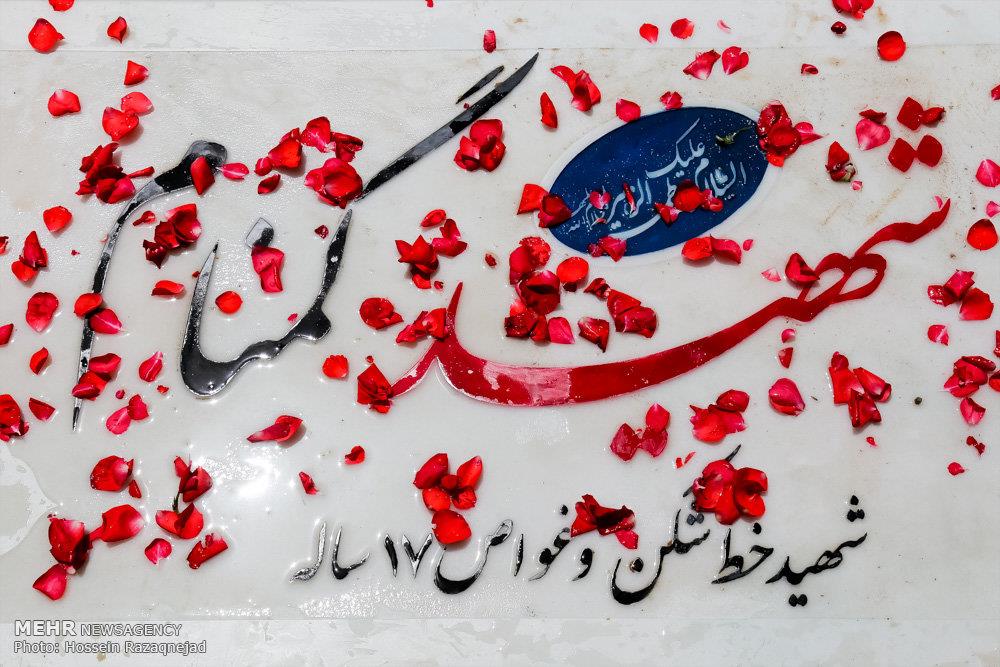 السلام علیک
شهید گمنام
شهید خط شکن و غواص ۱۷ ساله
MEHR NEWSAGENCY
Photo: Hossein Razaqnejad